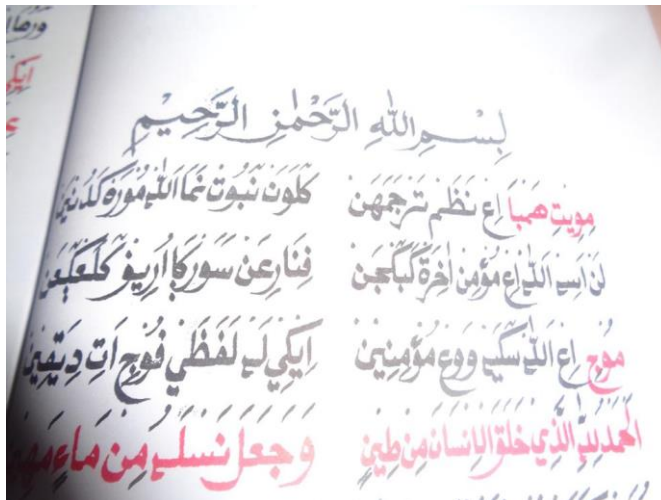 بِسْمِ اللهِ الرَّحْمٰنِ الرَّحِيْمِ
مويت همبا اع نظم ترجمهن كلون نبوت نما الله موره كدنين
لن اسيه الله اع مؤمن اخرة فنارعن سوركا اريف
موج اع الله سكيه ووع مؤمنين ايكي له لفظي فوج ات دتيقين
الحمد لله الذي خلق الانسان من طين وجعل نسله من ماء مهين